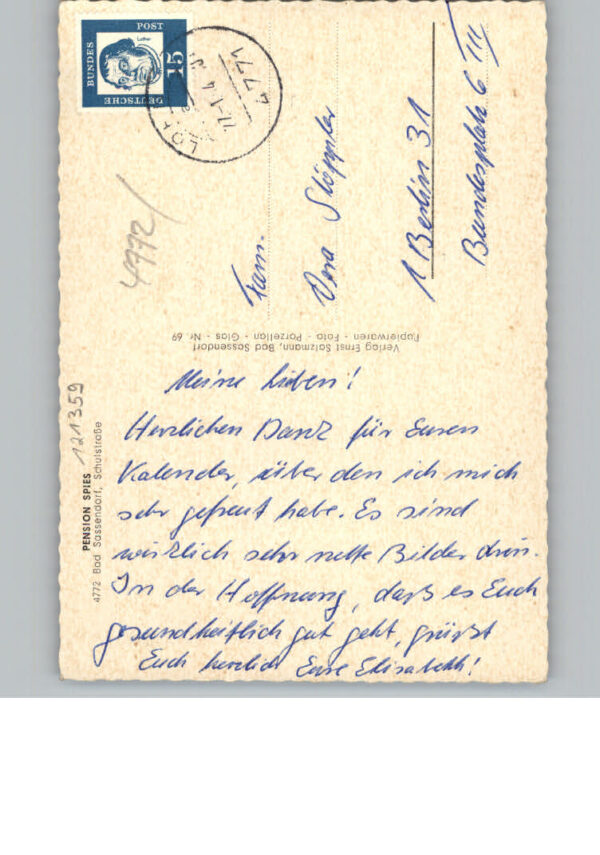 DEUTSCHE
BUNDES
POST
15
4771
4772/
Fam.
Dora Stöppler
1 Berlin 31
Bundesplatz 6 III
Verlag Ernst Salzmann, Bad Sassendorf
Papierwaren - Foto - Porzellan - Glas - Nr. 69
121359
PENSION SPIES
4772 Bad Sassendorf, Schulstraße
Meine Lieben!
Herzlichen Dank für Euren
Kalender, über den ich mich
sehr gefreut habe. Es sind
wirklich sehr nette Bilder drin.
In der Hoffnung, daß es Euch
gesundheitlich gut geht, grüßt
Euch herzlich Eure Elisabeth!